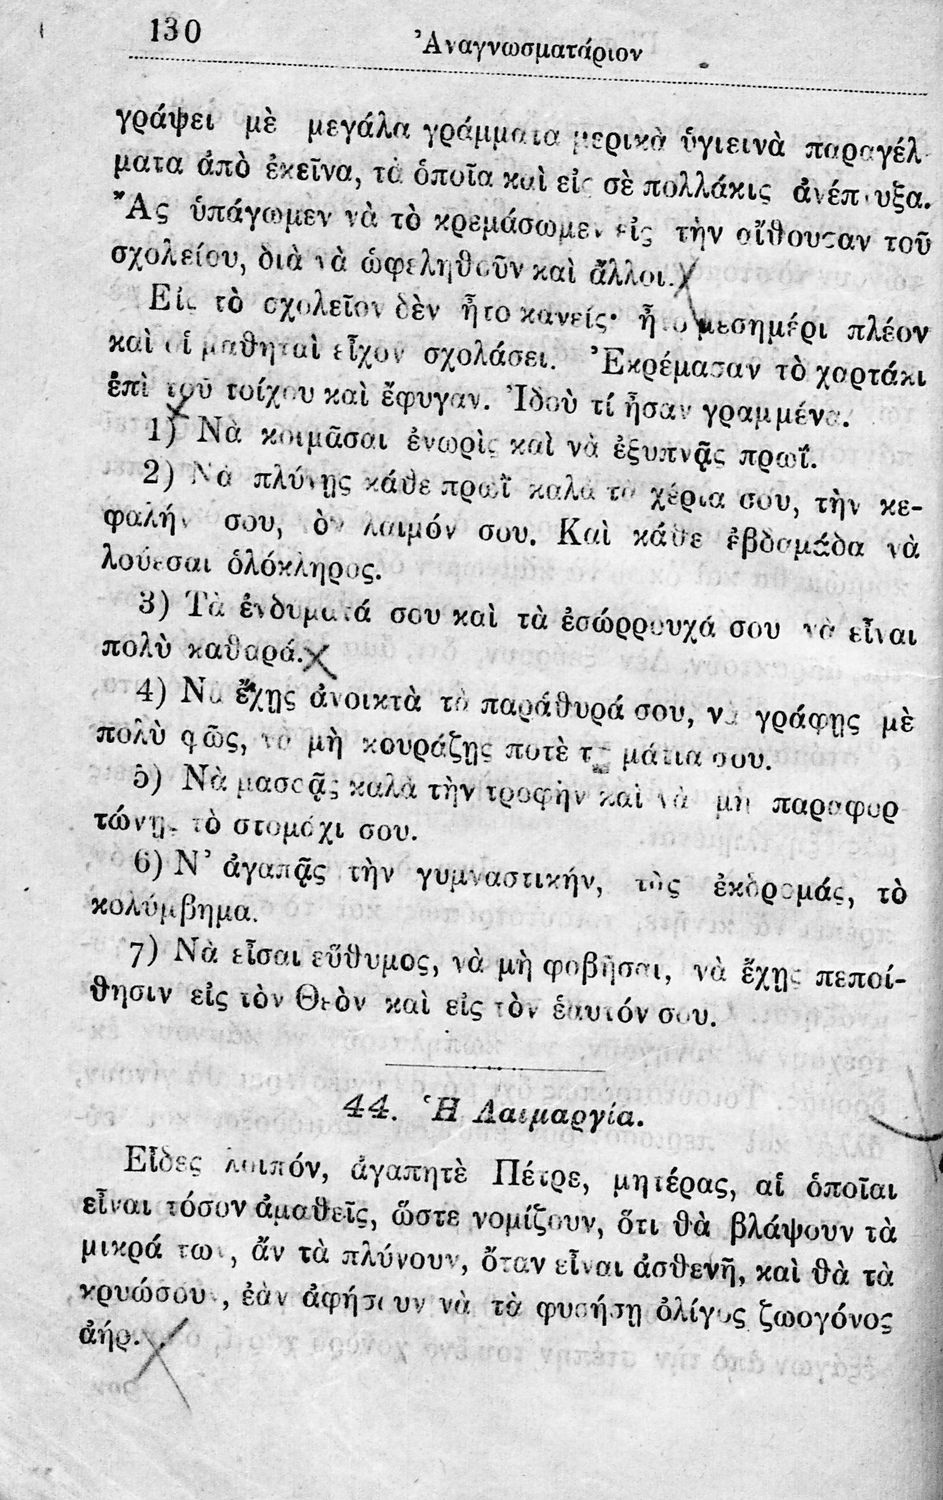 130
Ἀναγνωσματάριον
γράψει μὲ μεγάλα γράμματα μερικὰ ὑγιεινὰ παραγέλ-
ματα ἀπὸ ἐκεῖνα, τὰ ὁποῖα καὶ εἰς σὲ πολλάκις ἀνέπτυξα.
Ἂς ὑπάγωμεν νὰ τὸ κρεμάσωμεν εἰς τὴν αἴθουσαν τοῦ
σχολείου, διὰ νὰ ὠφεληθοῦν καὶ ἄλλοι.
Εἰς τὸ σχολεῖον δὲν ἦτο κανείς· ἦτο μεσημέρι πλέον
καὶ οἱ μαθηταὶ εἶχον σχολάσει. Ἐκρέμασαν τὸ χαρτάκι
ἐπὶ τοῦ τοίχου καὶ ἔφυγαν. Ἰδοὺ τί ἦσαν γραμμένα.
1) Νὰ κοιμᾶσαι ἐνωρὶς καὶ νὰ ἐξυπνᾷς πρωΐ.
2) Νὰ πλύνῃς κάθε πρωῒ καλὰ τὰ χέρια σου, τὴν κε-
φαλήν σου, ὸν λαιμόν σου. Καὶ κάθε ἑβδομάδα νὰ
λούεσαι ὁλόκληρος.
3) Τὰ ἐνδυματά σου καὶ τὰ ἐσώρρουχά σου νὰ εἶναι
πολὺ καθαρά.
4) Νὰ ἔχῃς ἀνοικτὰ τὰ παράθυρά σου, νὰ γράφῃς μὲ
πολὺ φῶς, νὰ μὴ κουράζῃς ποτὲ τὰ μάτια σου.
5) Νὰ μασσᾷς καλὰ τὴν τροφὴν καὶ νὰ μὴ παραφορ
τώνῃς τὸ στομάχι σου.
6) Ν' ἀγαπᾷς τὴν γυμναστικήν, τὰς ἐκδρομάς, τὸ
κολύμβημα.
7) Νὰ εἶσαι εὔθυμος, νὰ μὴ φοβῆσαι, νὰ ἔχῃς πεποί-
θησιν εἰς τὸν Θεὸν καὶ εἰς τὸν ἑαυτόν σου.
44. Ἡ Λαιμαργία.
Εἶδες λοιπόν, ἀγαπητὲ Πέτρε, μητέρας, αἱ ὁποῖαι
εἶναι τόσον ἀμαθεῖς, ὥστε νομίζουν, ὅτι θὰ βλάψουν τὰ
μικρά των, ἂν τὰ πλύνουν, ὅταν εἶναι ἀσθενῆ, καὶ θὰ τὰ
κρυώσουν, ἐὰν ἀφήσουν νὰ τὰ φυσήσῃ ὀλίγος ζωογόνος
ἀήρ.